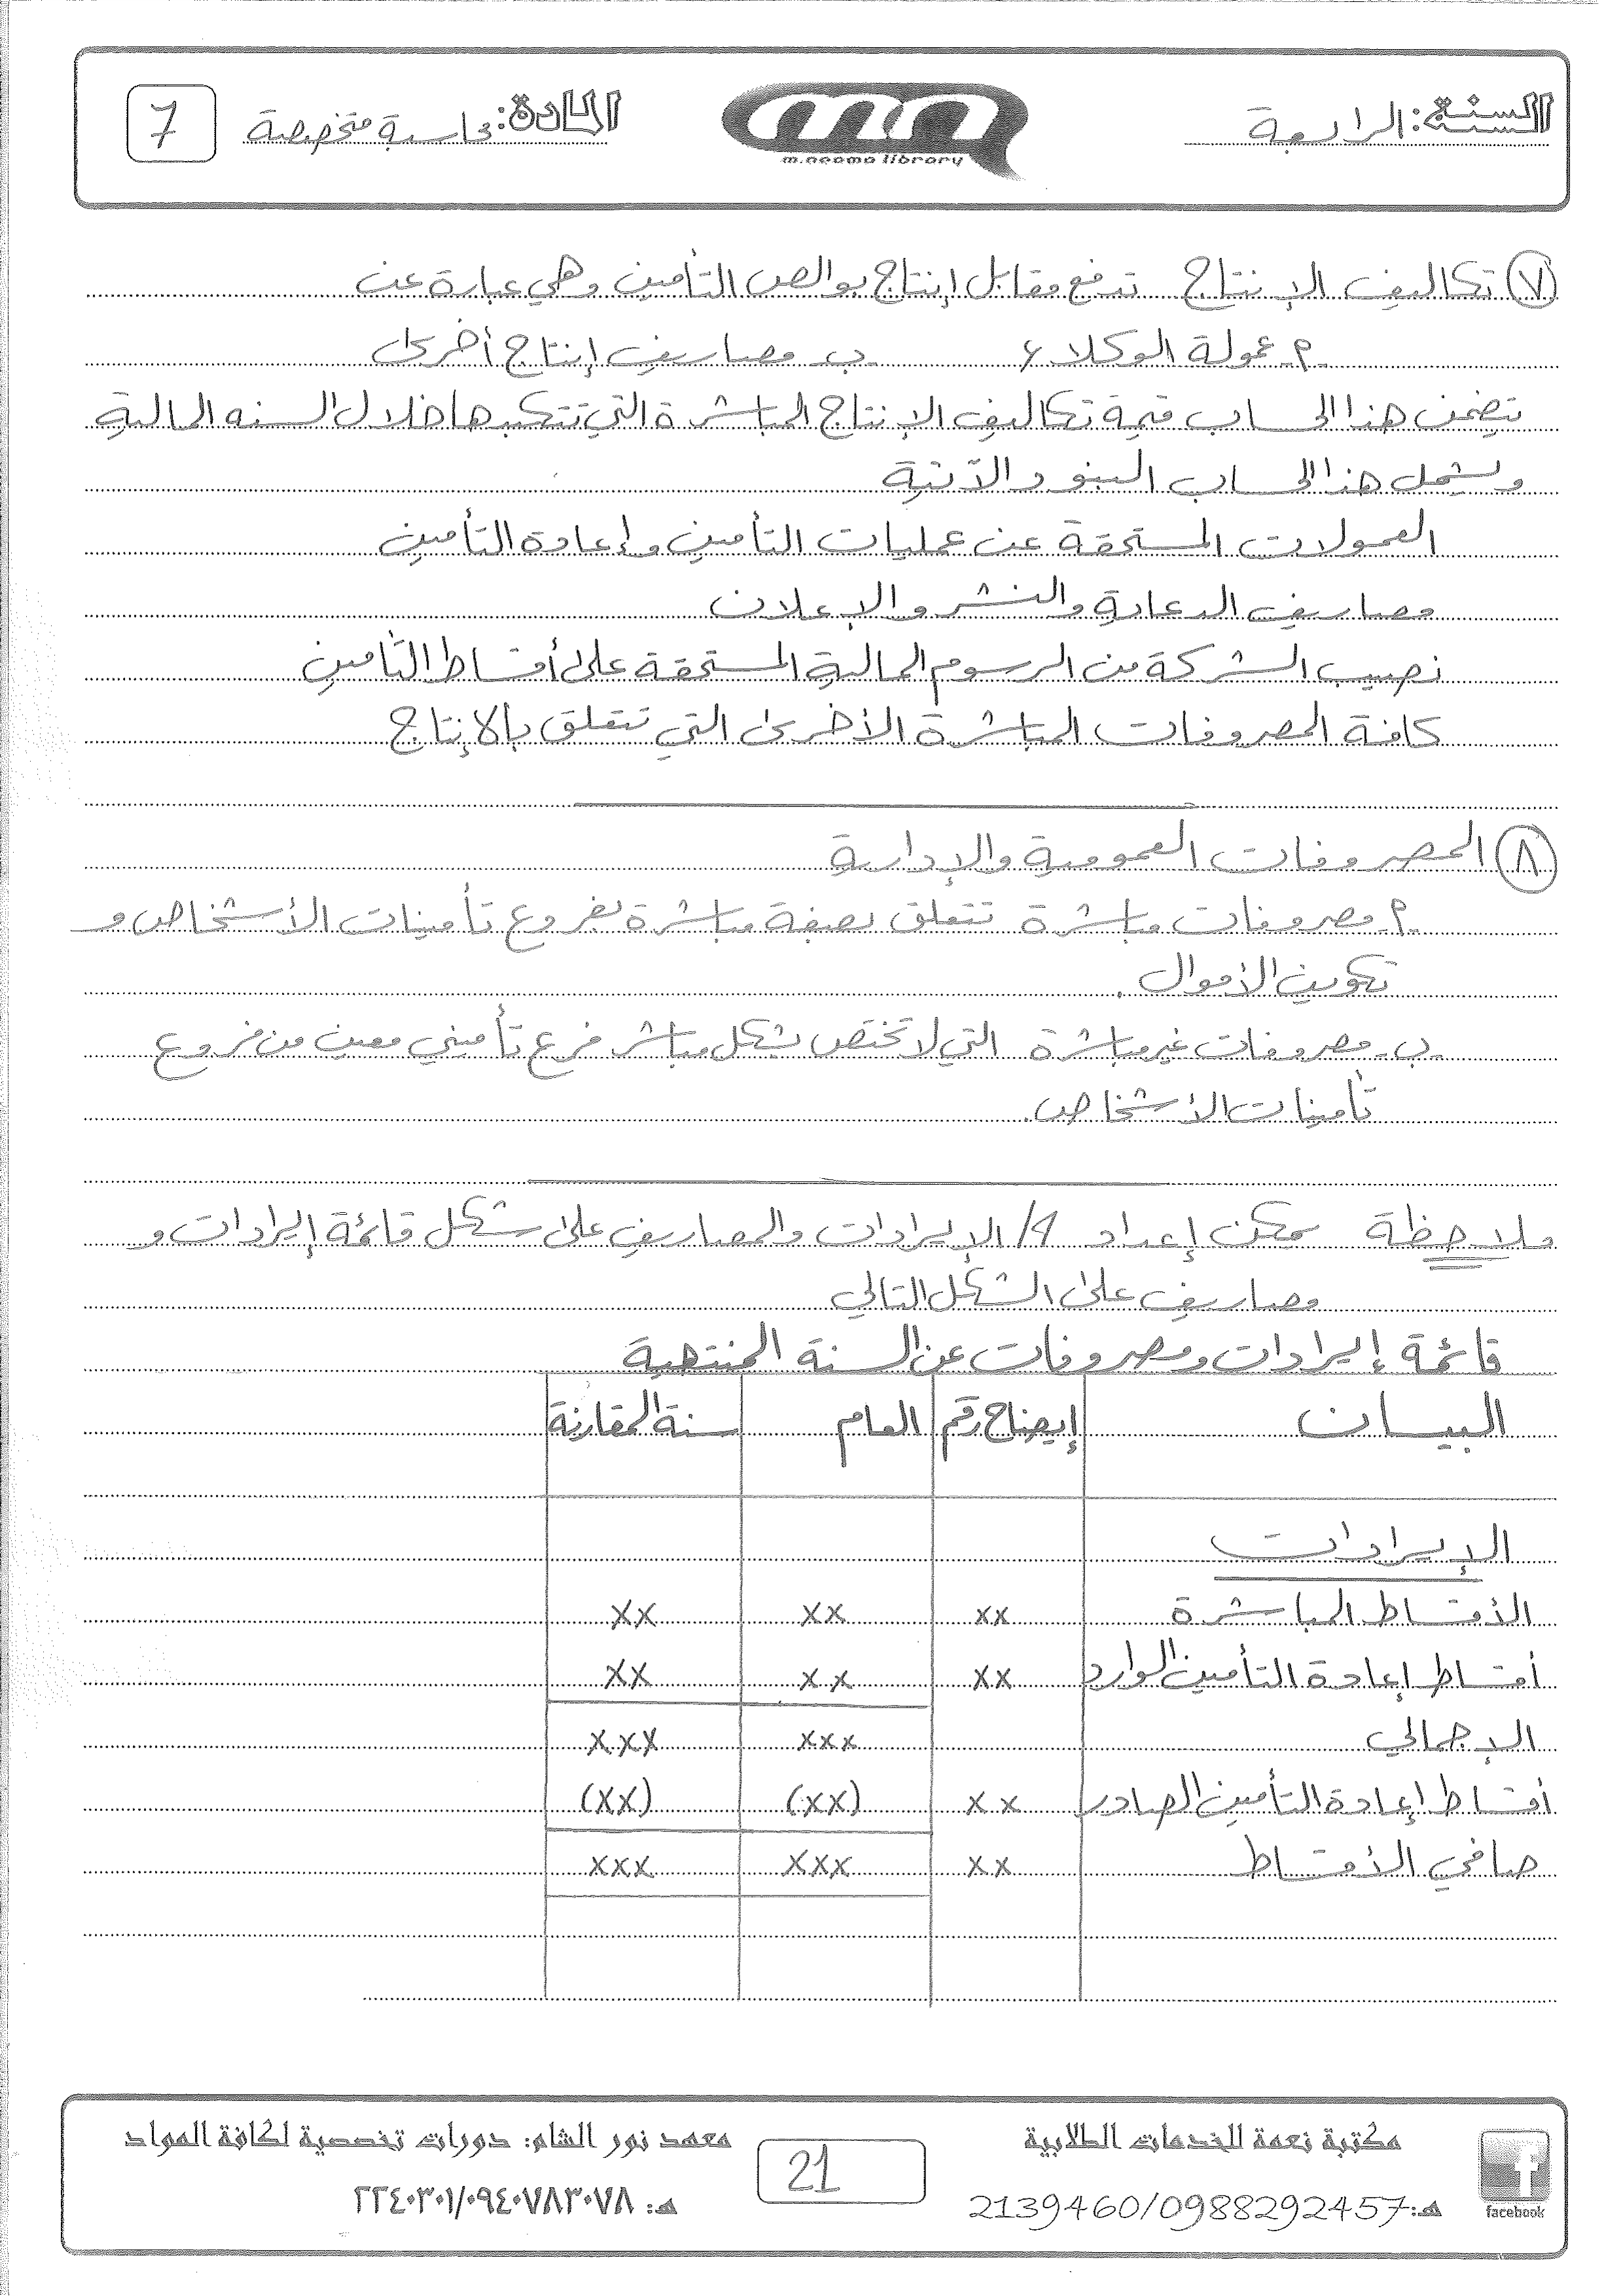 السنة: الرابعة
m.neama library
المادة: محاسبة متخصصة
7
٧ تكاليف الإنتاج تدفع مقابل إنتاج بوالص التأمين وهي عبارة عن
٩- عمولة الوكلاء ب- مصاريف إنتاج أخرى
يتضمن هذا الحساب قيمة تكاليف الإنتاج المباشرة التي تتكبدها خلال السنه المالية
ويشمل هذا الحساب البنود الآتية
العمولات المستحقة عن عمليات التأمين وإعادة التأمين
مصاريف الدعاية والنشر والإعلان
نصيب الشركة من الرسوم المالية المستحقة على أقساط التأمين
كافة المصروفات المباشرة الأخرى التي تتعلق بالإنتاج
٨ المصروفات العمومية والإدارية
٩- مصروفات مباشرة تتعلق بصفة مباشرة بفروع تأمينات الأشخاص و
تكوين الأموال.
ب- مصروفات غير مباشرة التي لا تختص بشكل مباشر فرع تأميني معين من فروع
تأمينات الأشخاص.
ملاحظة يمكن إعداد ح/ الإيرادات والمصاريف على شكل قائمة إيرادات و
مصاريف على الشكل التالي
قائمة إيرادات ومصروفات عن السنة المنتهية
البيان إيضاح رقم العام سنة المقارنة
الإيرادات
الأقساط المباشرة xx xx xx
أقساط إعادة التأمين الوارد xx xx xx
الإجمالي xxx xxx
أقساط إعادة التأمين الصادر xx (xx) (xx)
صافي الأقساط xx xxx xxx
facebook
مكتبة نعمة للخدمات الطلابية
هـ: 2139460/0988292457
21
معهد نور الشام: دورات تخصصية لكافة المواد
هـ: ٢٢٤٠٣٠١/٠٩٤٠٧٨٣٠٧٨